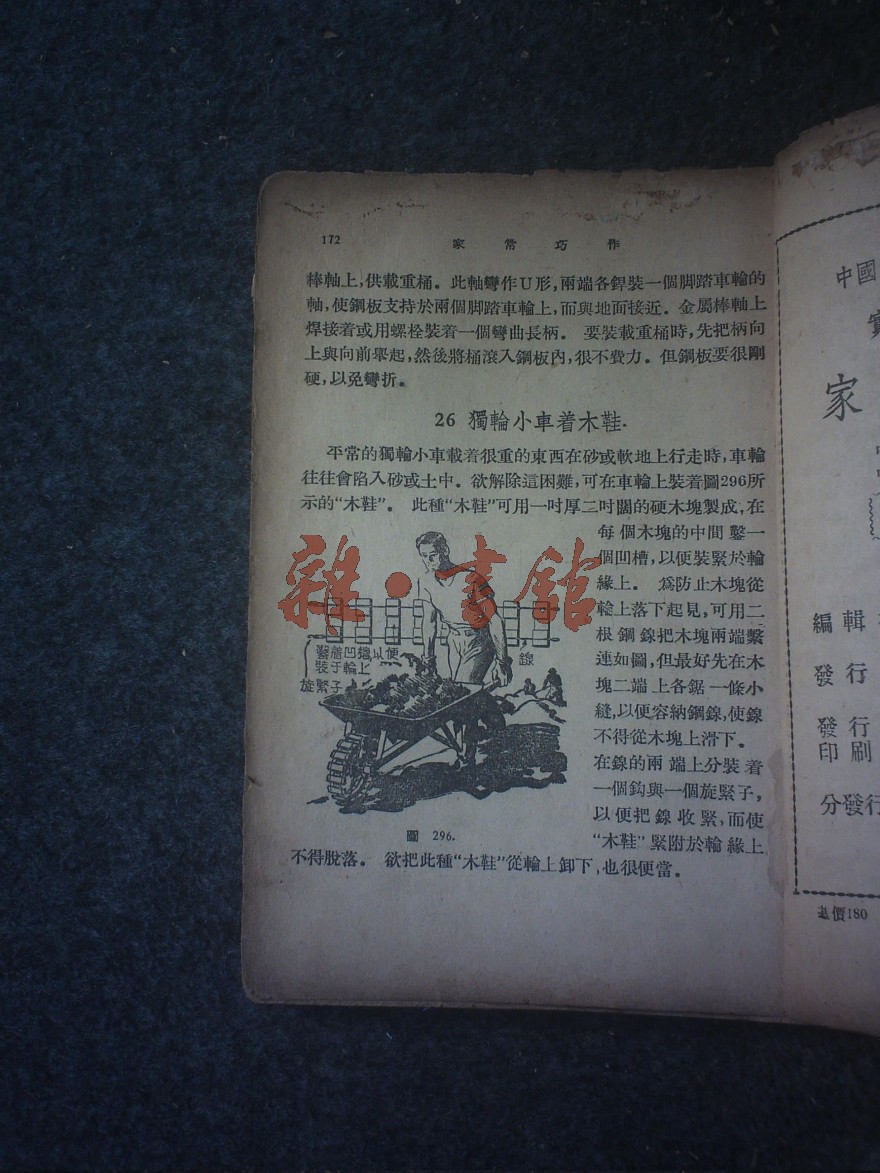 172
家常巧作
棒軸上,供載重桶。此軸彎作U形,兩端各銲裝一個脚踏車輪的
軸,使鋼板支持於兩個脚踏車輪上,而與地面接近。金屬棒軸上
焊接着或用螺栓裝着一個彎曲長柄。要裝載重桶時,先把柄向
上與向前舉起,然後將桶滾入鋼板內,很不費力。但鋼板要很剛
硬,以免彎折。
26 獨輪小車着木鞋.
平常的獨輪小車載着很重的東西在砂或軟地上行走時,車輪
往往會陷入砂或土中。欲解除這困難,可在車輪上裝着圖296所
示的“木鞋”。此種“木鞋”可用一吋厚二吋闊的硬木塊製成,在
每個木塊的中間鑿一
個凹槽,以便裝緊於輪
緣上。爲防止木塊從
輪上落下起見,可用二
根鋼線把木塊兩端繫
連如圖,但最好先在木
塊二端上各鋸一條小
縫,以便容納鋼線,使線
不得從木塊上滑下。
在線的兩端上分裝着
一個鈎與一個旋緊子,
以便把線收緊,而使
“木鞋”緊附於輪緣上
不得脫落。欲把此種“木鞋”從輪上卸下,也很便當。
凹槽以便
裝于輪上
旋緊子
線
圖 296.
雜·書館
中國
家
編輯
發行
發行
印刷
分發行
價180